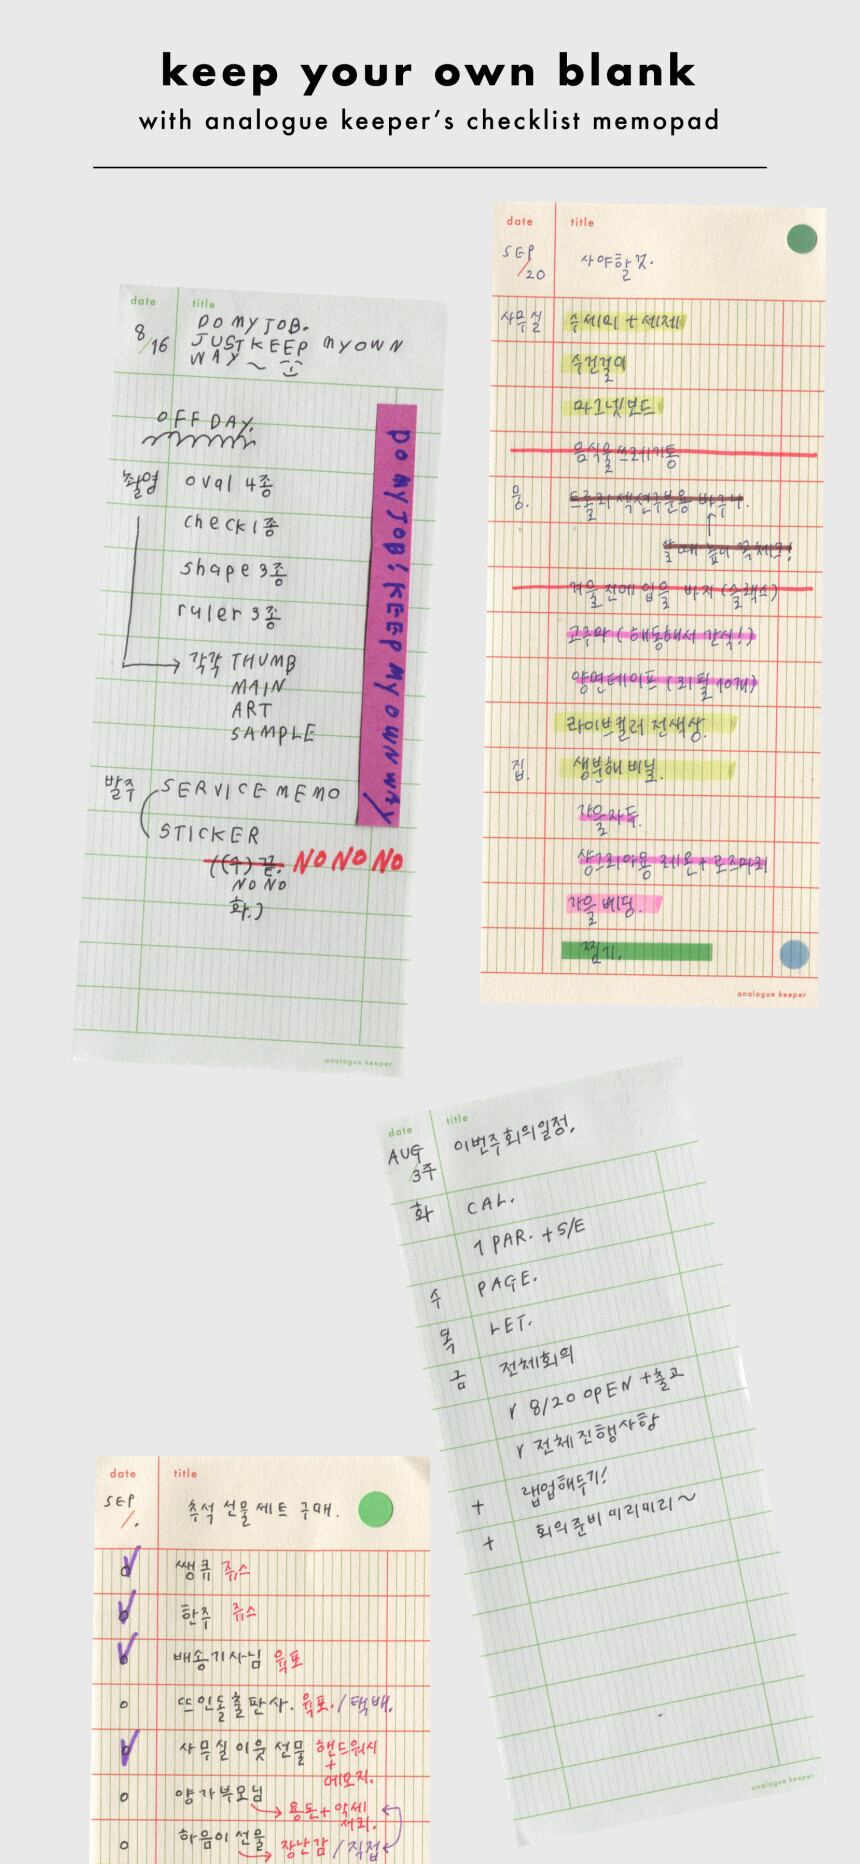 keep your own blank
with analogue keeper's checklist memopad
date title
8/16 DO MY JOB.
JUST KEEP MY OWN
WAY ~
OFF DAY.
촬영 oval 4종
check 1종
shape 3종
ruler 3종
각각 THUMB
MAIN
ART
SAMPLE
발주 SERVICE MEMO
STICKER
((수) 끈. NO NO NO
NO NO
화.)
DO MY JOB! KEEP MY OWN WAY
analogue keeper
date title
SEP/20 사야할 것.
사무실 수세미 + 세제
수건걸이
마그넷보드
음식물쓰레기통
몽. 트롤리 섹션구분용 바구니.
살때 높이 꼭 체크!
겨울 전에 입을 바지 (슬랙스)
고구마 (해동해서 간식!)
양면테이프 (리필 10개)
라이브컬러 전색상.
집. 생분해 비닐.
가을자두.
샹그리아용 레몬 + 로즈마리
가을 베딩.
찜기.
analogue keeper
date title
AUG/3주 이번주회의일정.
화 CAL.
1 PAR. + S/E
수 PAGE.
목 LET.
금 전체회의
r 8/20 OPEN + 출고
r 전체진행사항
+ 랩업해두기!
+ 회의준비 미리미리~
analogue keeper
date title
SEP/. 추석 선물 세트 구매.
쌩큐 쥬스
한주 쥬스
배송기사님 육포
뜨인돌출판사. 육포. / 택배.
사무실 이웃 선물 핸드워시
+
메모지.
양가부모님
용돈 + 악세
서리.
하음이 선물 장난감 / 직접